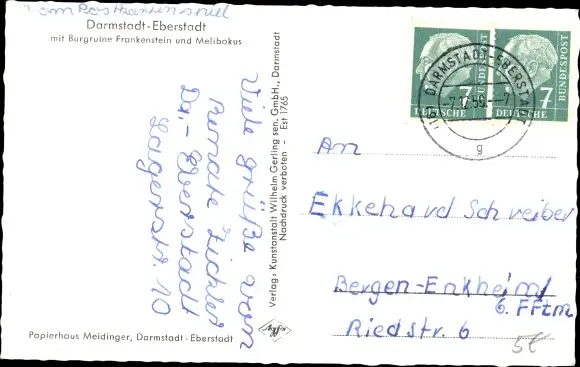 am Postkartenspiel
Darmstadt-Eberstadt
mit Burgruine Frankenstein und Melibokus
Viele Grüße von
Renate Zickler
Da.- Eberstadt
Lagerstr. 10
Verlag: Kunstanstalt Wilhelm Gerling sen. GmbH., Darmstadt
Nachdruck verboten - Est 1765
Papierhaus Meidinger, Darmstadt-Eberstadt
DEUTSCHE BUNDESPOST
7
DEUTSCHE BUNDESPOST
7
DARMSTADT-EBERSTADT
g
An
Ekkehard Schreiber
Bergen-Enkheim/
b. Ffm.
Riedstr. 6